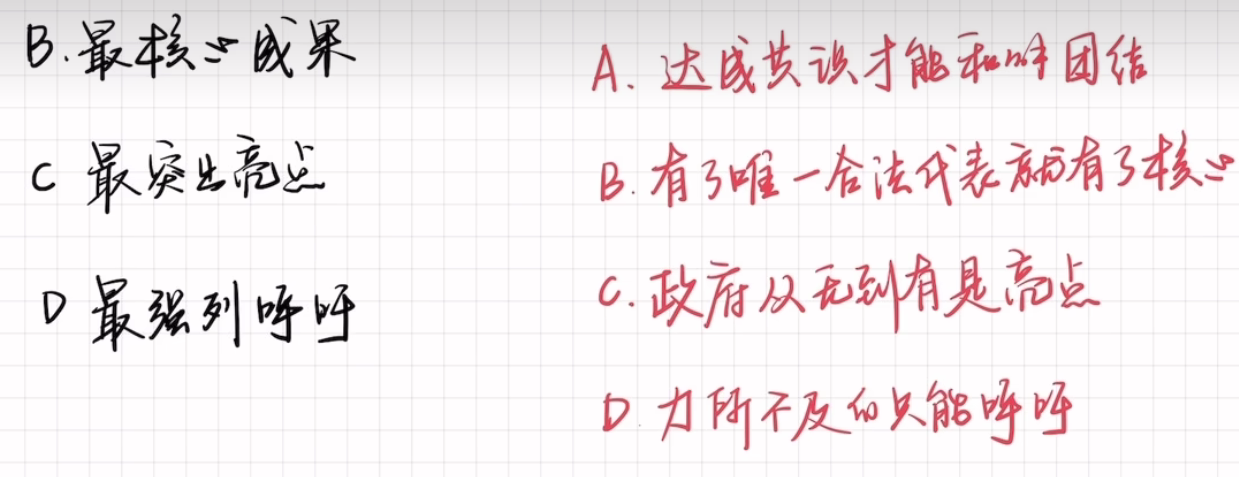 B.最核心成果
C 最突出亮点
D 最强列呼吁
A. 达成共识才能和解团结
B. 有了唯一合法代表就有了核心
C. 政府从无到有是亮点
D. 力所不及的只能呼吁